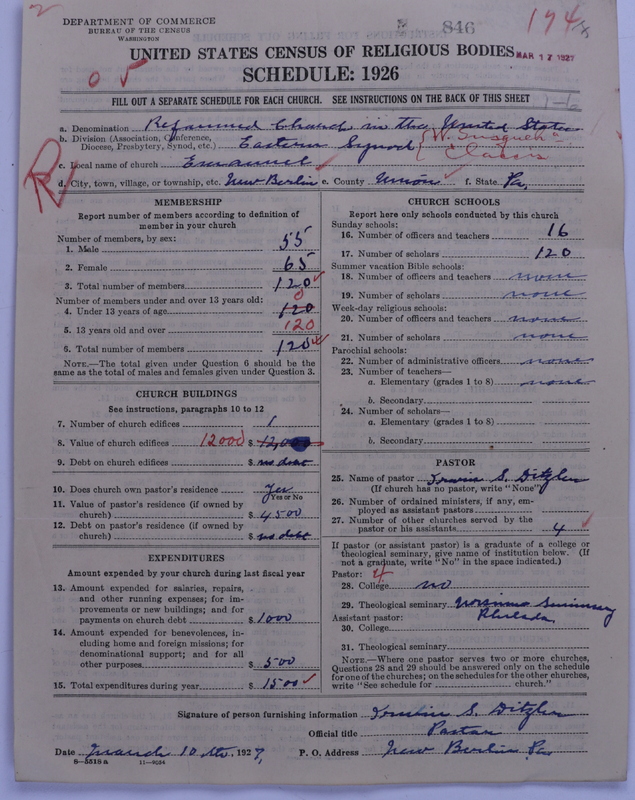 DEPARTMENT OF COMMERCE
BUREAU OF THE CENSUS
WASHINGTON
846
194
UNITED STATES CENSUS OF RELIGIOUS BODIES
MAR 17 1927
SCHEDULE: 1926
0 5
FILL OUT A SEPARATE SCHEDULE FOR EACH CHURCH. SEE INSTRUCTIONS ON THE BACK OF THIS SHEET
1-6
a. Denomination Reformed Church in the United States
b. Division (Association, Conference, Diocese, Presbytery, Synod, etc.) Eastern Synod
Classis
c. Local name of church Emanuel
d. City, town, village, or township, etc. New Berlin e. County Union f. State Pa.
R
MEMBERSHIP
Report number of members according to definition of
member in your church
Number of members, by sex:
1. Male 55
2. Female 65
3. Total number of members 120
Number of members under and over 13 years old:
0
4. Under 13 years of age 120
5. 13 years old and over 120
6. Total number of members 120
NOTE.—The total given under Question 6 should be
same as the total of males and females given under Question 3.
CHURCH BUILDINGS
See instructions, paragraphs 10 to 12
7. Number of church edifices 1
8. Value of church edifices 12000 $ 12,000
9. Debt on church edifices $ no debt
10. Does church own pastor's residence Yes
Yes or No
11. Value of pastor's residence (if owned by
church) $ 4500
12. Debt on pastor's residence (if owned by
church) $ no debt
EXPENDITURES
Amount expended by your church during last fiscal year
13. Amount expended for salaries, repairs,
and other running expenses; for im-
provements or new buildings; and for
payments on church debt $ 1000
14. Amount expended for benevolences, in-
cluding home and foreign missions; for
denominational support; and for all
other purposes $ 500
15. Total expenditures during year $ 1500
CHURCH SCHOOLS
Report here only schools conducted by this church
Sunday schools:
16. Number of officers and teachers 16
17. Number of scholars 120
Summer vacation Bible schools:
18. Number of officers and teachers none
19. Number of scholars none
Week-day religious schools:
20. Number of officers and teachers none
21. Number of scholars none
Parochial schools:
22. Number of administrative officers none
23. Number of teachers—
a. Elementary (grades 1 to 8) none
b. Secondary
24. Number of scholars—
a. Elementary (grades 1 to 8)
b. Secondary
PASTOR
25. Name of pastor S. Ditzler
(If church has no pastor, write "None")
26. Number of ordained ministers, if any, em-
ployed as assistant pastors
27. Number of other churches served by the
pastor or his assistants 4
If pastor (or assistant pastor) is a graduate of a college or
theological seminary, give name of institution below. (If
not a graduate, write "No" in the space indicated.)
Pastor: 4
28. College no
29. Theological seminary Ursinus Seminary
Assistant pastor: Philada
30. College
31. Theological seminary
NOTE.—Where one pastor serves two or more churches,
Questions 28 and 29 should be answered only on the schedule
for one of the churches; on the schedules for the other churches,
write "See schedule for church."
Signature of person furnishing information S. Ditzler
Official title Pastor
Date March 10 th, 1927, P. O. Address New Berlin Pa
8—5518 a 11—9034